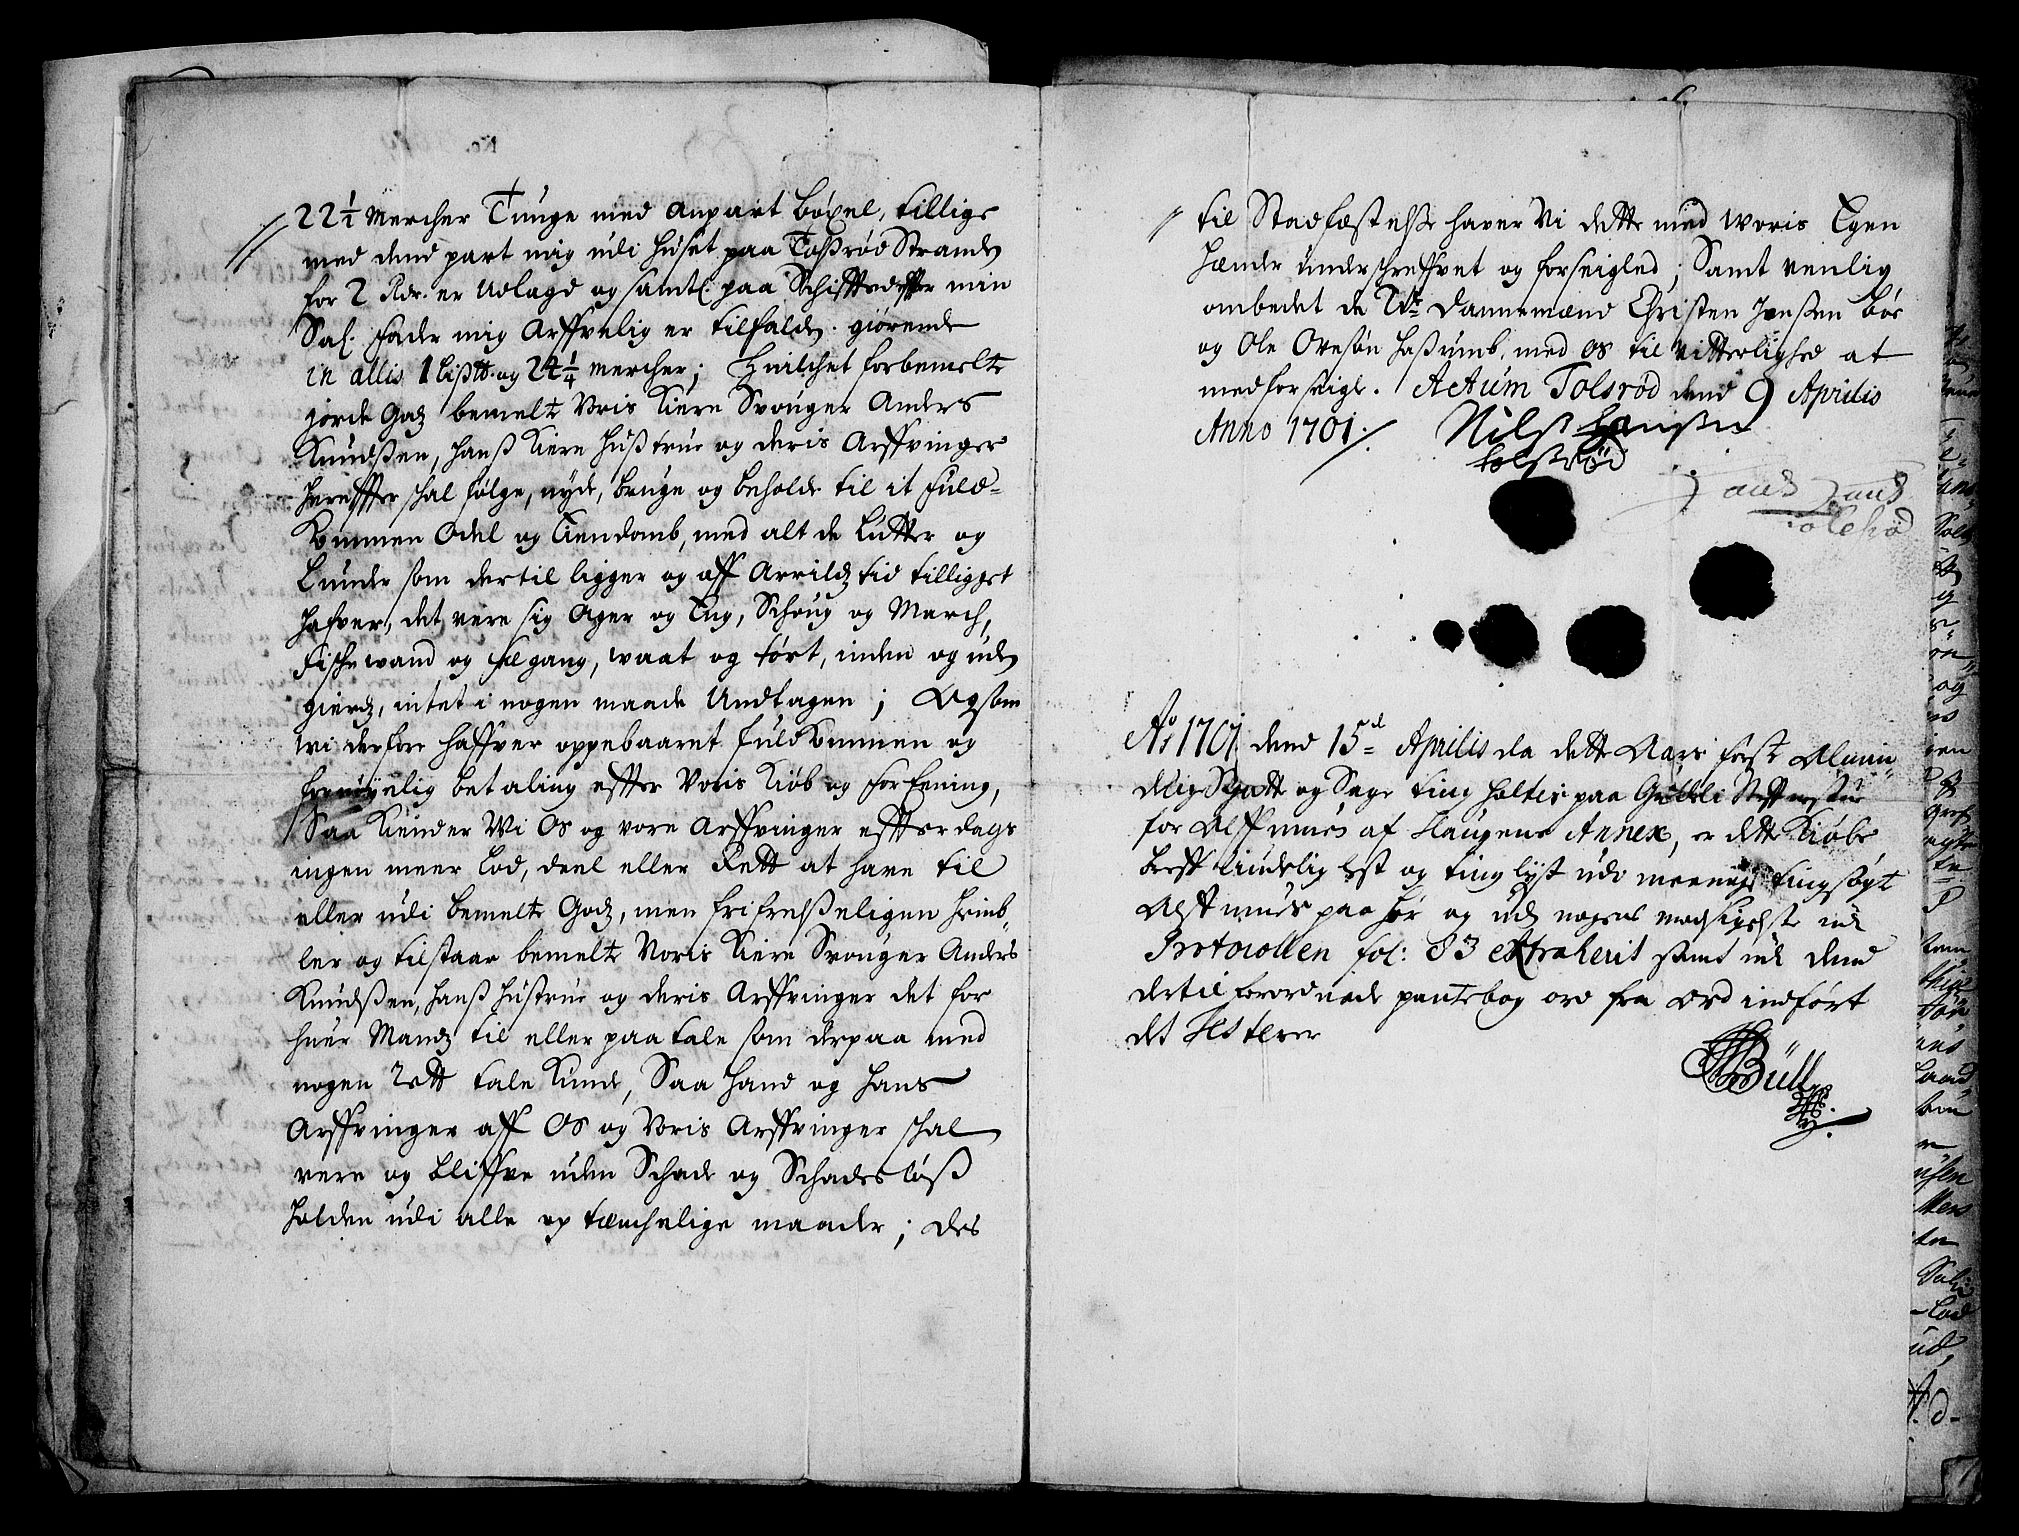 22½ Mercher Tunge med anpart bøxel, tillige
med dend part mig udi Huset paa Tolsrød Strand
for 2 Rdr. er Udlagd og samtl. paa Schifftedt effter min
Sal. Fader mig Arffvelig er tilfalden. giørende
in allis 1 Lispd. og 24¼ mercher; Hvilchet forbemelte
jorde Godz bemelte Voris Kiere Svouger Anders
Knudsen, Hanß Kiere Hustrue og deris Arffvinger
hereffter schal følge, nyde, bruge og beholde til it fuld-
kommen Odel og Eiendomb, med alt de Lutter og
Lunder som dertil ligger og aff Arrildz tid tilligget
hafver, det vere sig Ager og Eng, Schoug og March,
Fischewand og Fægang, waat og tørt, inden og uden
gierdz, intet i nogen maade Undtagen; Og som
wi derfore haffver oppebaaret fuldkommen og
fornøyelig betaling effter Voris Kiøb og forEening,
Saa Kiender Wi Os og vore Arffvinger effter dags
ingen meer Lod, deel eller Rett at have til
eller udi bemelte Godz, men fri frelßeligen Heimb-
ler og tilstaar bemelte Voris Kiere Svouger Anders
Knudßen, Hanß Hustrue og deris Arffvinger det for
huer Mandz til eller paatale som derpaa med
nogen Rett tale Kunde, Saa Hand og Hans
Arffvinger aff Os og Voris Arffvinger schal
vere og bliffve uden Schade og Schadesløß
holden udi alle optænchelige maader; Des
til Stadfæstelße haver Vi dette med Woris Egen
Hænder underschrefvet og forseigled; Samt venlig
ombedet de Dannemænd Christen Jenßen Bøe
og Ole Oveßøn Haßumb, med os til Vitterlighed at
medforseigle. Actum Tolsrød dend 9 Aprilis
Anno 1701.
Nilß Hanßen
Tolsrød
Tolsrød
Ao 1701 dend 15de Aprilis da dette Aars først Almin-
delige Schatte og Sage ting holtes paa
for Almues af Haugens Annex, er dette Kiøbe
breff tindelig lest og tinglyst udi meenige tingsøgt
Almues paahør og uden nogens modsigelse udi
Protocollen fol: 83 extraherit samt udi dend
dertil forordnede panttebog ord fra Ord indført
det Testerer
Büll